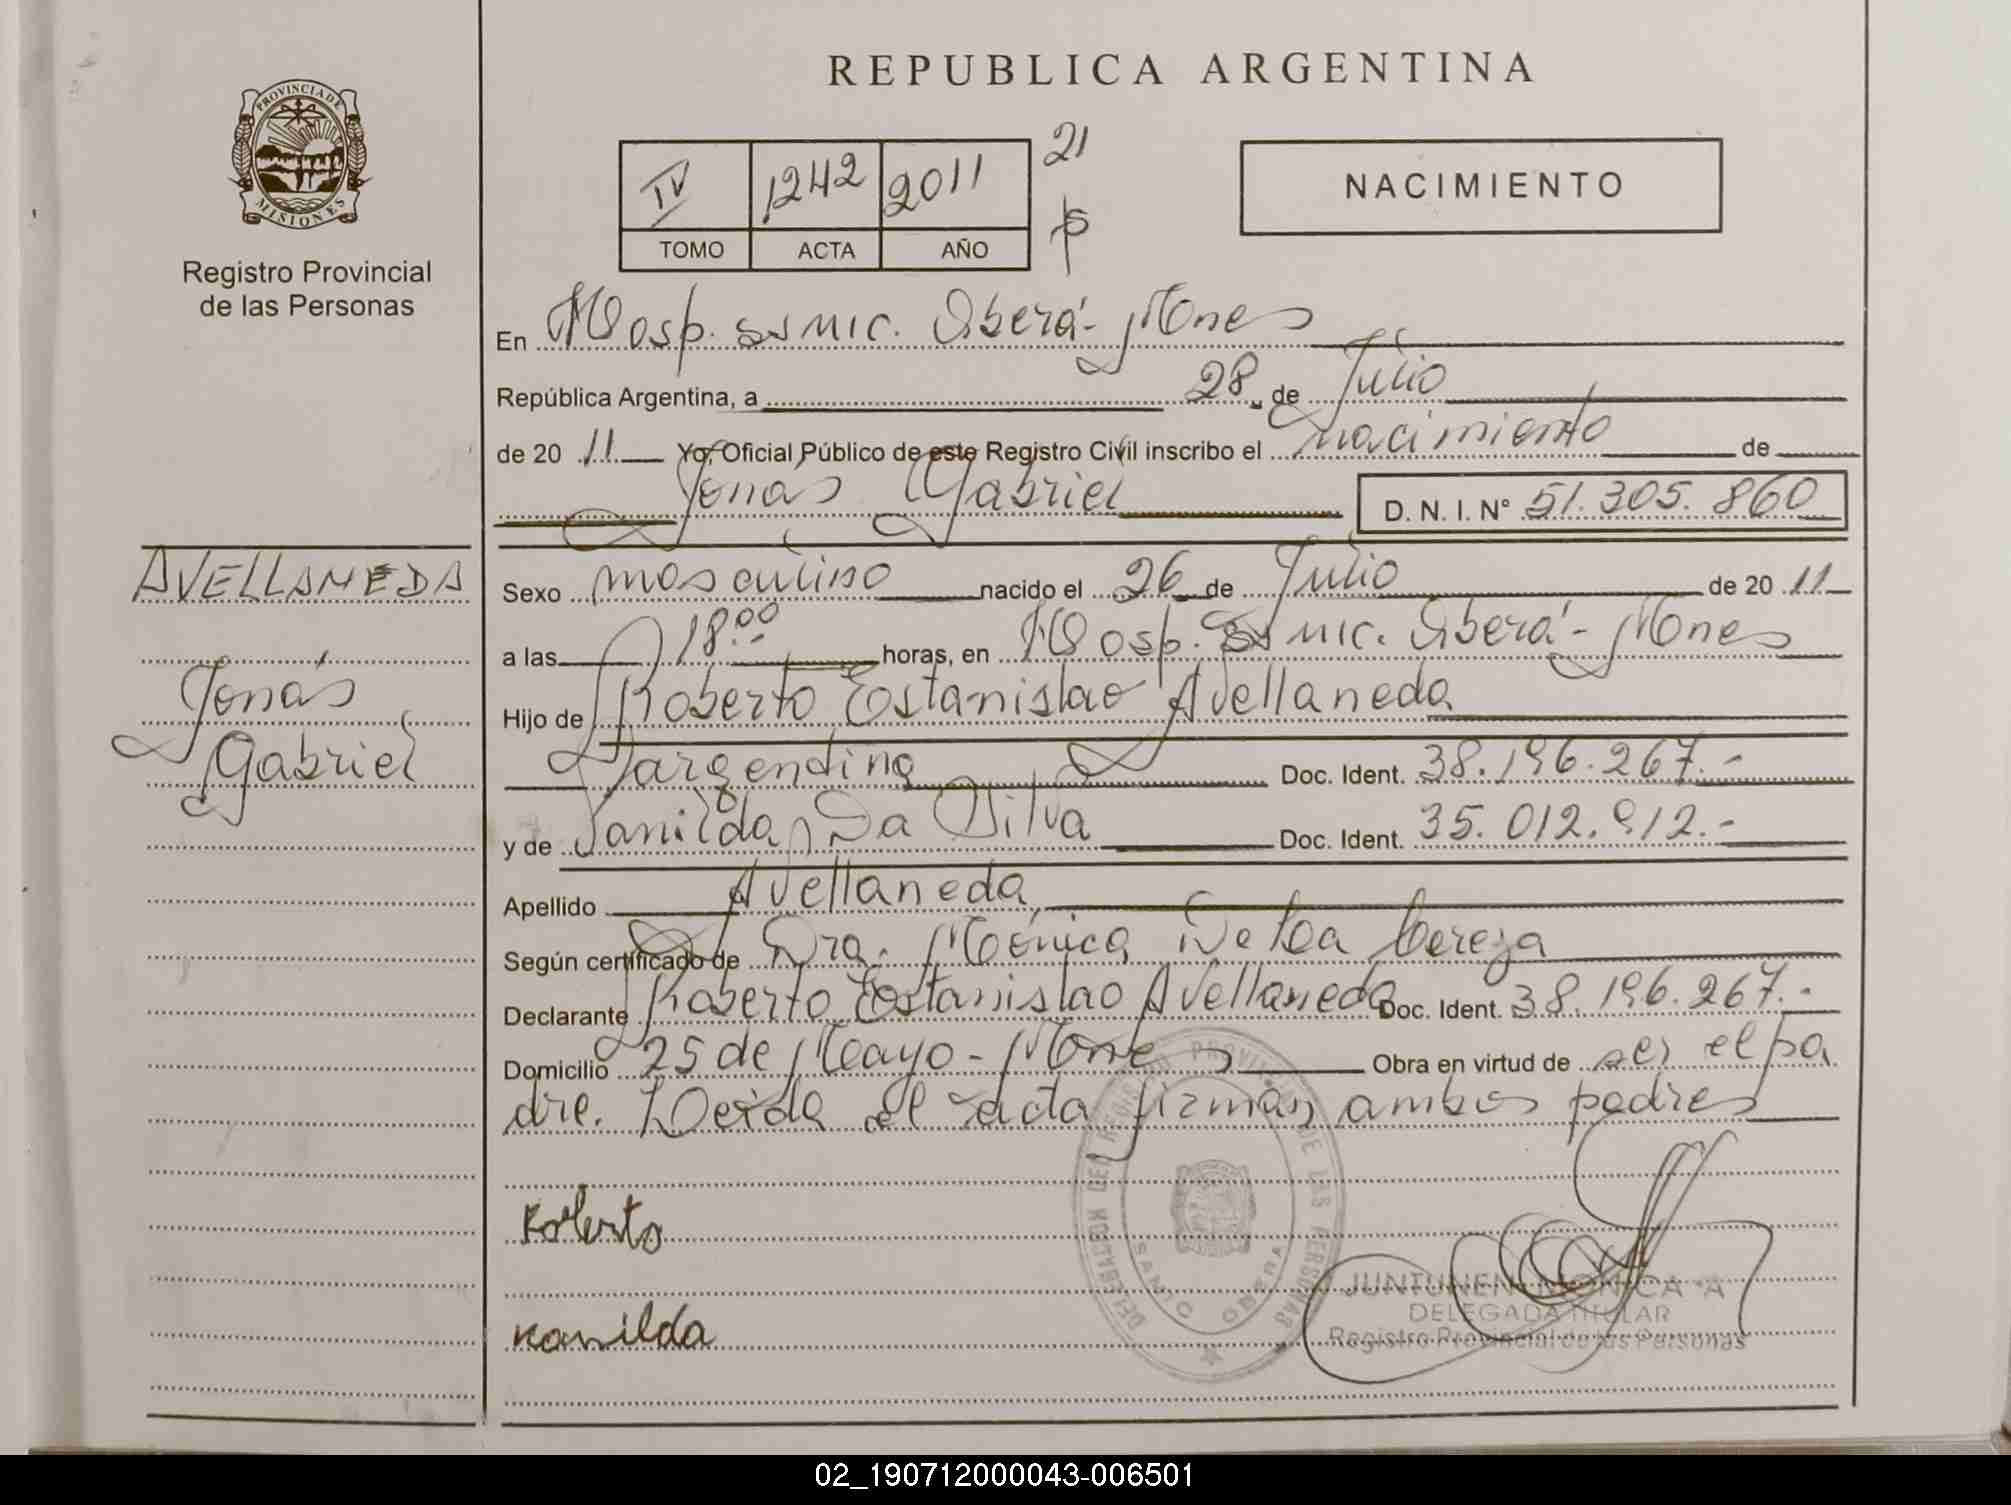 REPUBLICA ARGENTINA
PROVINCIA DE
MISIONES
Registro Provincial
de las Personas
IV 1242 2011 21
TOMO ACTA AÑO
NACIMIENTO
En Hosp. SS MIC. Oberá - Mnes
República Argentina, a 28 de Julio
de 20 11 Yo, Oficial Público de este Registro Civil inscribo el nacimiento de
Jonás Gabriel D. N. I. Nº 51.305.860
AVELLANEDA
Jonás
Gabriel
Sexo masculino nacido el 26 de Julio de 20 11
a las 18:00 horas, en Hosp. SS MIC. Oberá - Mnes
Hijo de Roberto Estanislao Avellaneda
argentino Doc. Ident. 38.196.267.-
y de Ianilda Da Silva Doc. Ident. 35.012.912.-
Apellido Avellaneda
Según certificado de Dra. Mónica De La Cereja
Declarante Roberto Estanislao Avellaneda Doc. Ident. 38.196.267.-
Domicilio 25 de Mayo - Mnes Obra en virtud de ser el pa
dre. Leida el acta firman ambos padres
Roberto
DELEGACION DEL REGISTRO PROVINCIAL DE LAS PERSONAS
OBERA
JUNTUNEN MONICA A
DELEGADA TITULAR
Registro Provincial de las Personas
02_190712000043-006501